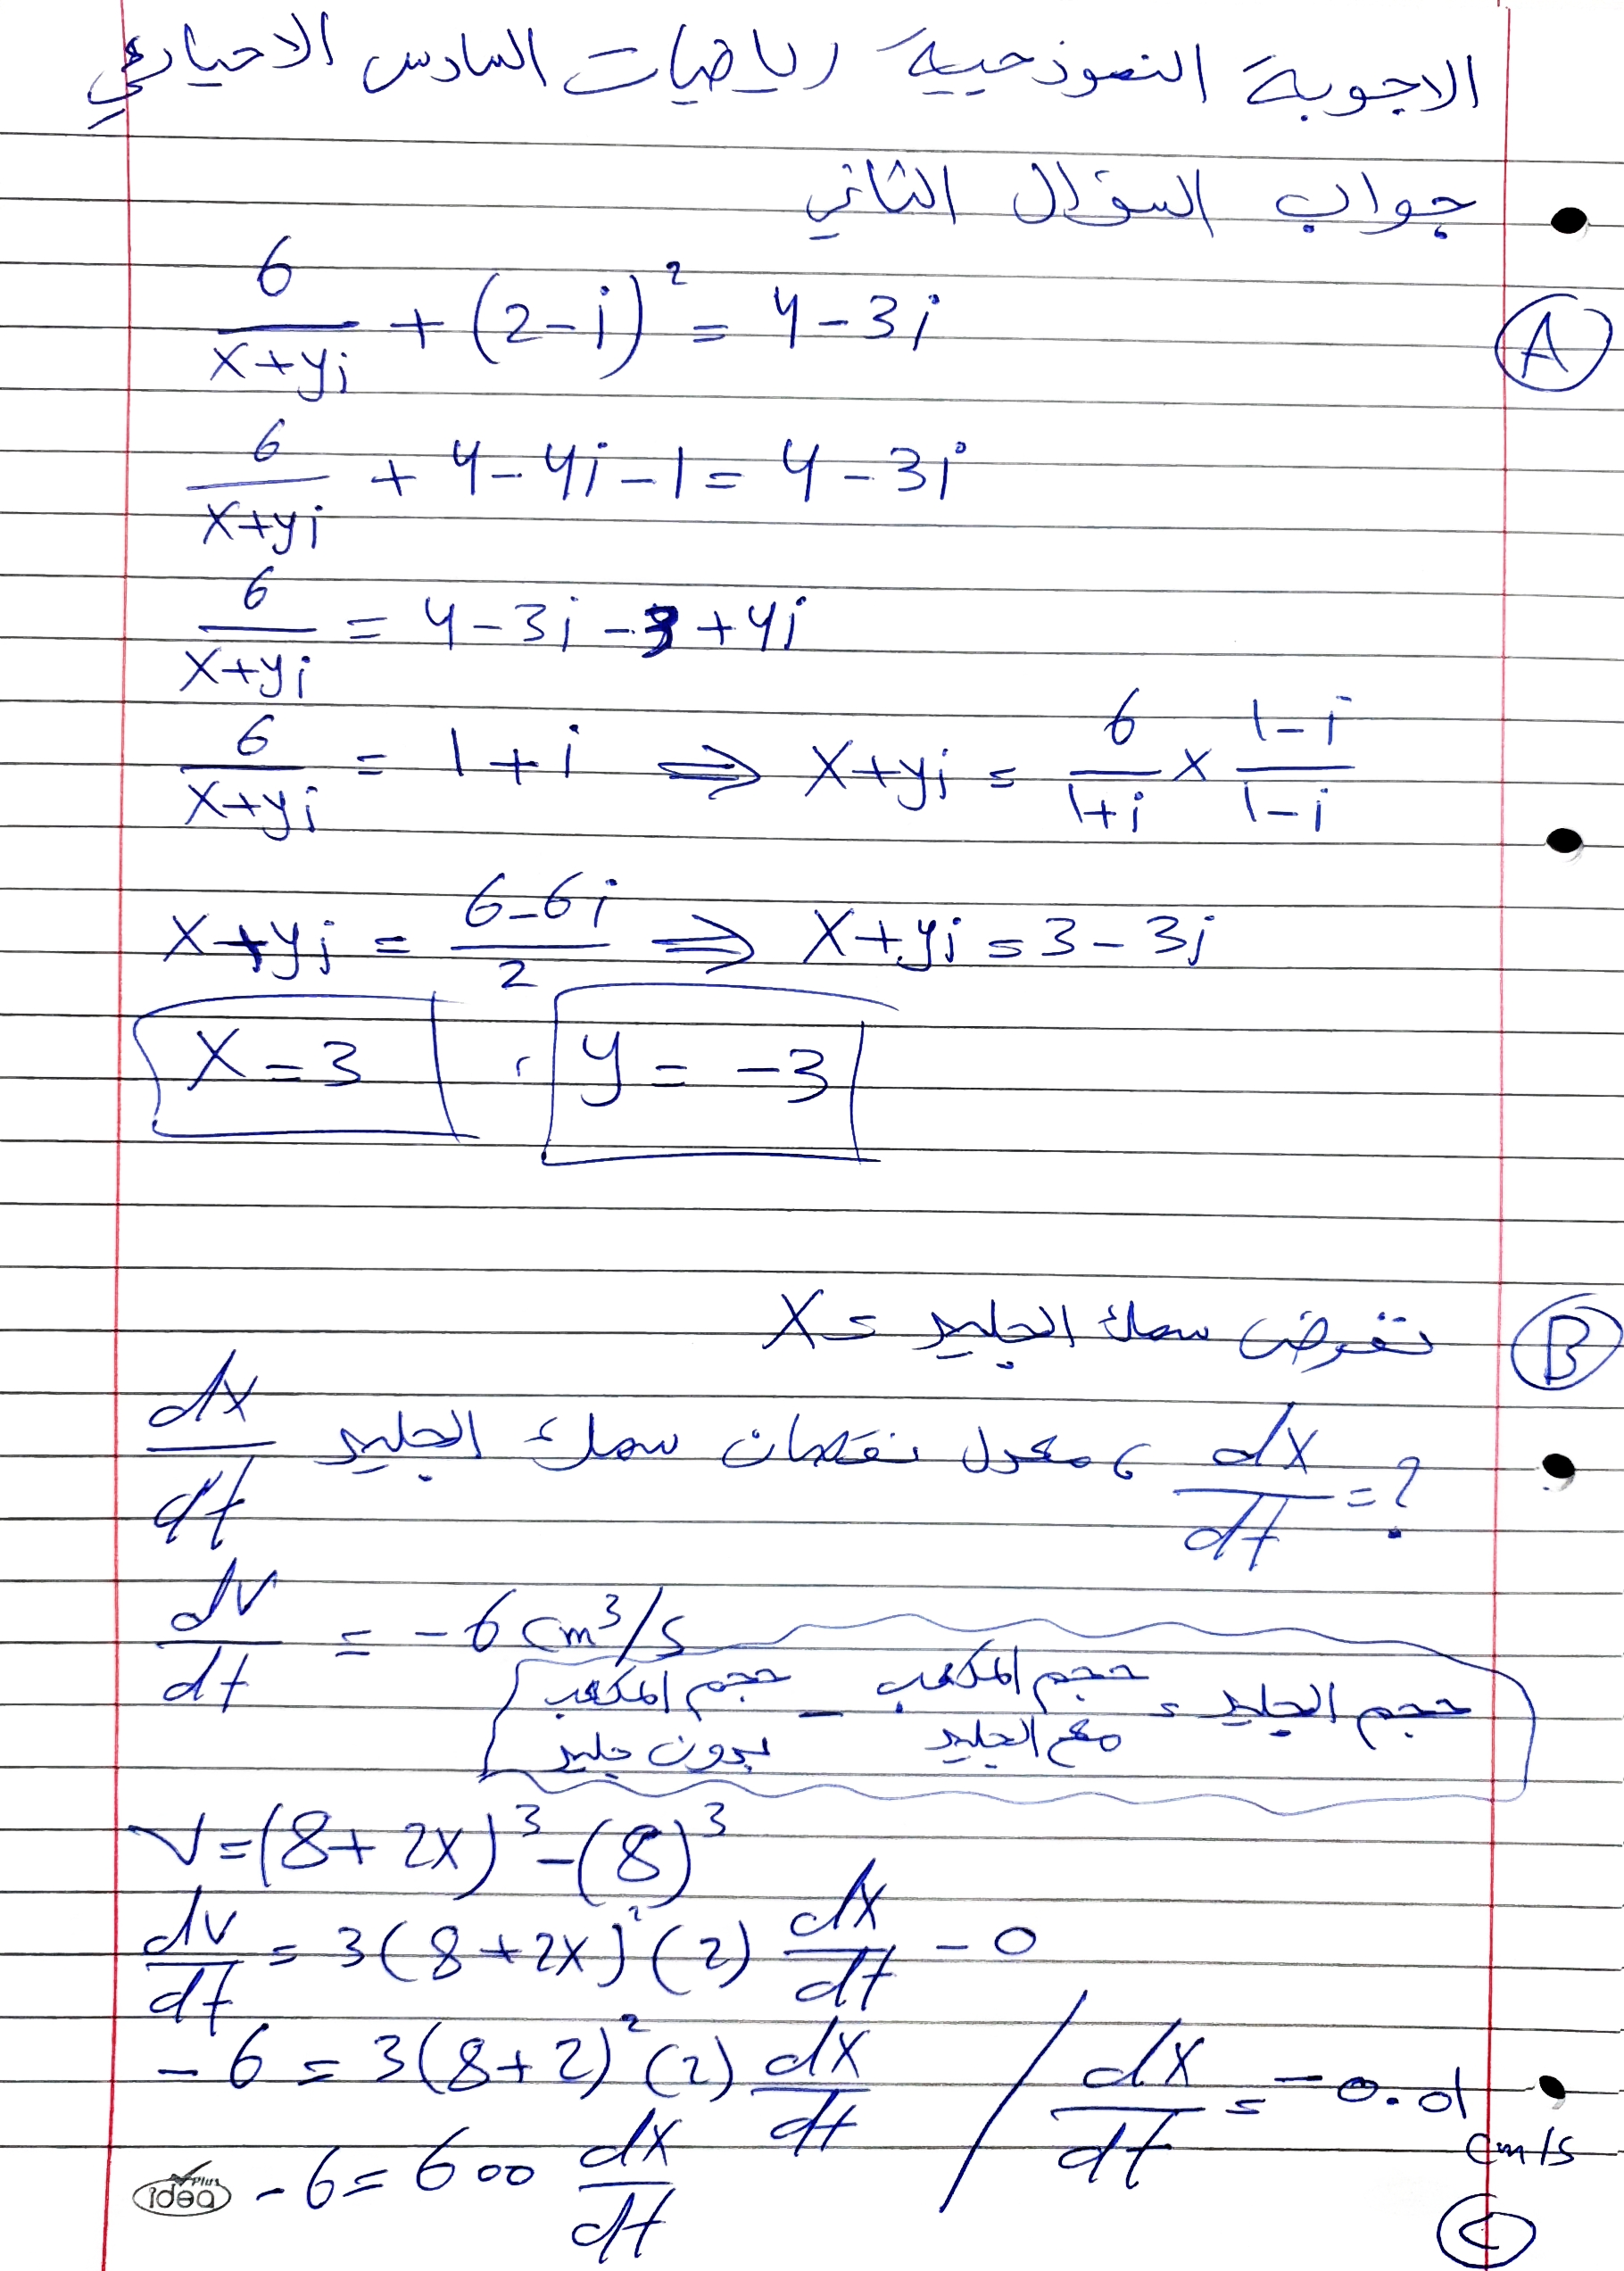 الاجوبة النموذجية رياضيات السادس الاحيائي
جواب السؤال الثاني
A
6/(x+yi) + (2-i)² = 4-3i
6/(x+yi) + 4-4i-1 = 4-3i
6/(x+yi) = 4-3i-3+4i
6/(x+yi) = 1+i ⇒ x+yi = 6/(1+i) × (1-i)/(1-i)
x+yi = (6-6i)/2 ⇒ x+yi = 3-3i
x=3 ، y=-3
B نفرض سمك الجليد = x
dx/dt = ? ، معدل نقصان سمك الجليد dx/dt
dv/dt = -6 cm³/s
حجم الجليد = حجم المكعب مع الجليد - حجم المكعب بدون جليد
V=(8+2x)³-(8)³
dv/dt = 3(8+2x)²(2) dx/dt - 0
-6 = 3(8+2)²(2) dx/dt / dx/dt = -0.01 cm/s
-6 = 600 dx/dt
idea Plus